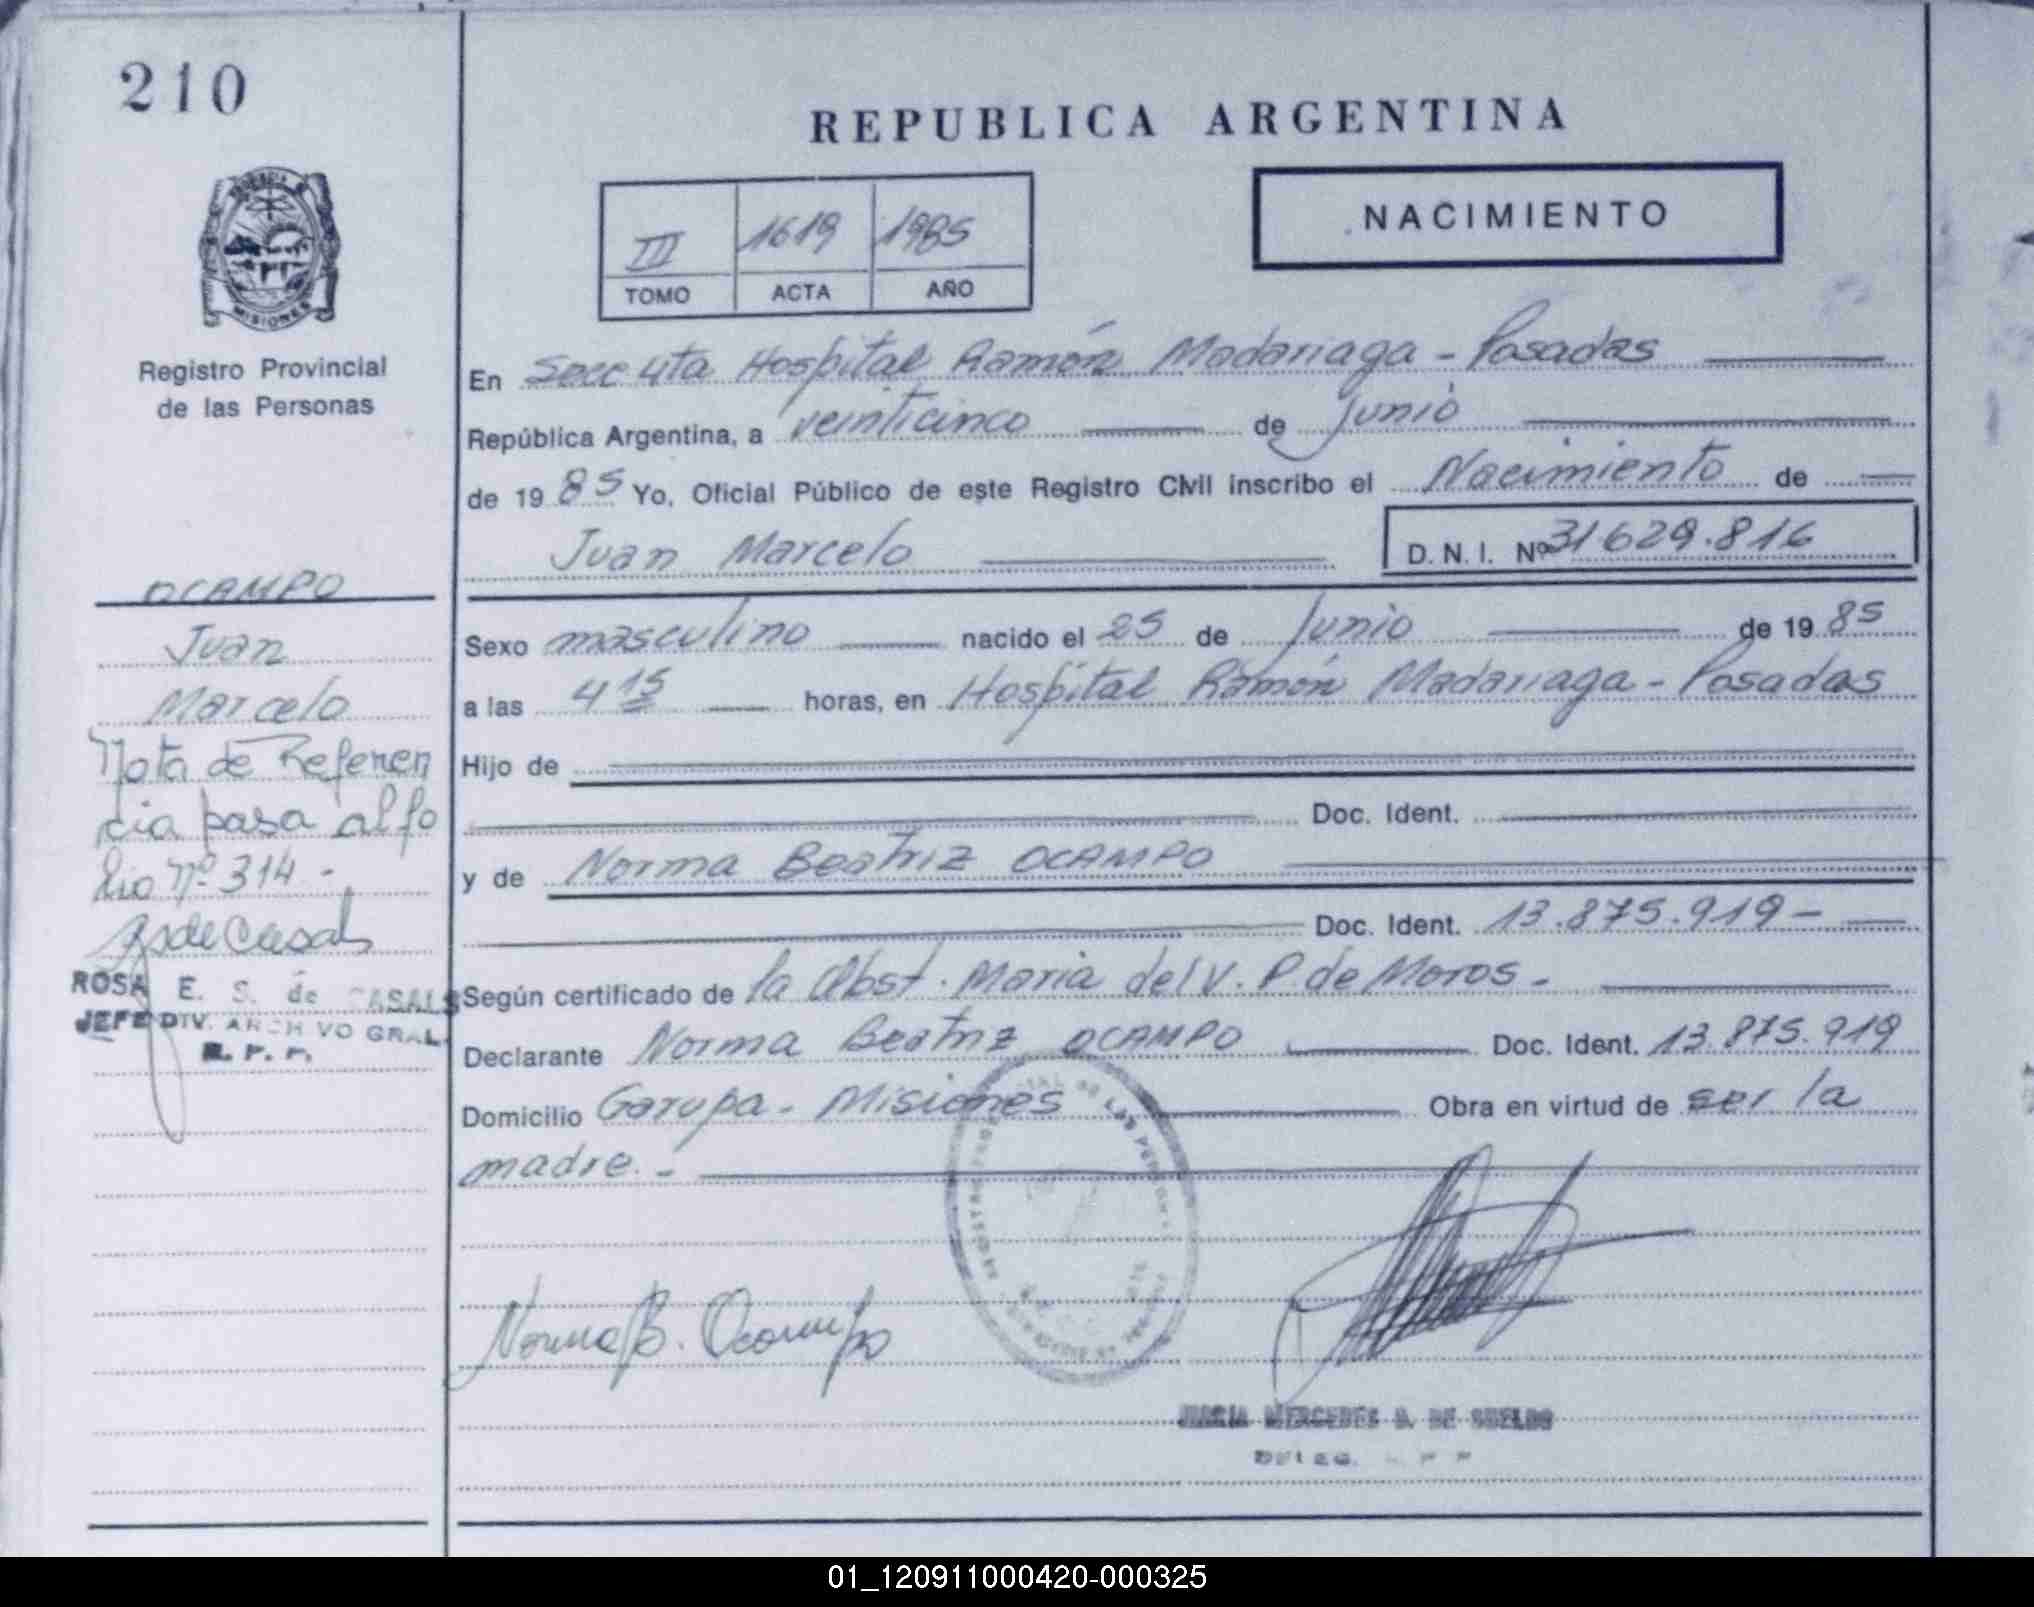 210
REPUBLICA ARGENTINA
III 1619 1985
TOMO ACTA AÑO
NACIMIENTO
MISIONES
Registro Provincial
de las Personas
En Secc 4ta Hospital Ramón Madariaga - Posadas
República Argentina, a veinticinco de Junio
de 1985 Yo, Oficial Público de este Registro Civil inscribo el Nacimiento de
Juan Marcelo D. N. I. Nº 31629.816
OCAMPO
Juan
Marcelo
Nota de Referen
cia pasa al fo
lio Nº 314 -
ROSA E. S. de CASALS
JEFE DIV. ARCHIVO GRAL.
R. P. P.
Sexo masculino nacido el 25 de Junio de 1985
a las 4 15 horas, en Hospital Ramón Madariaga - Posadas
Hijo de
Doc. Ident.
y de Norma Beatriz OCAMPO
Doc. Ident. 13.875.919 -
Según certificado de la Obst. Maria del V. P. de Moros -
Declarante Norma Beatriz OCAMPO Doc. Ident. 13.875.919
Domicilio Garupa - Misiones Obra en virtud de ser la
madre. -
Norma B. Ocampo
MARIA MERCEDES D. DE SUELDO
01_120911000420-000325